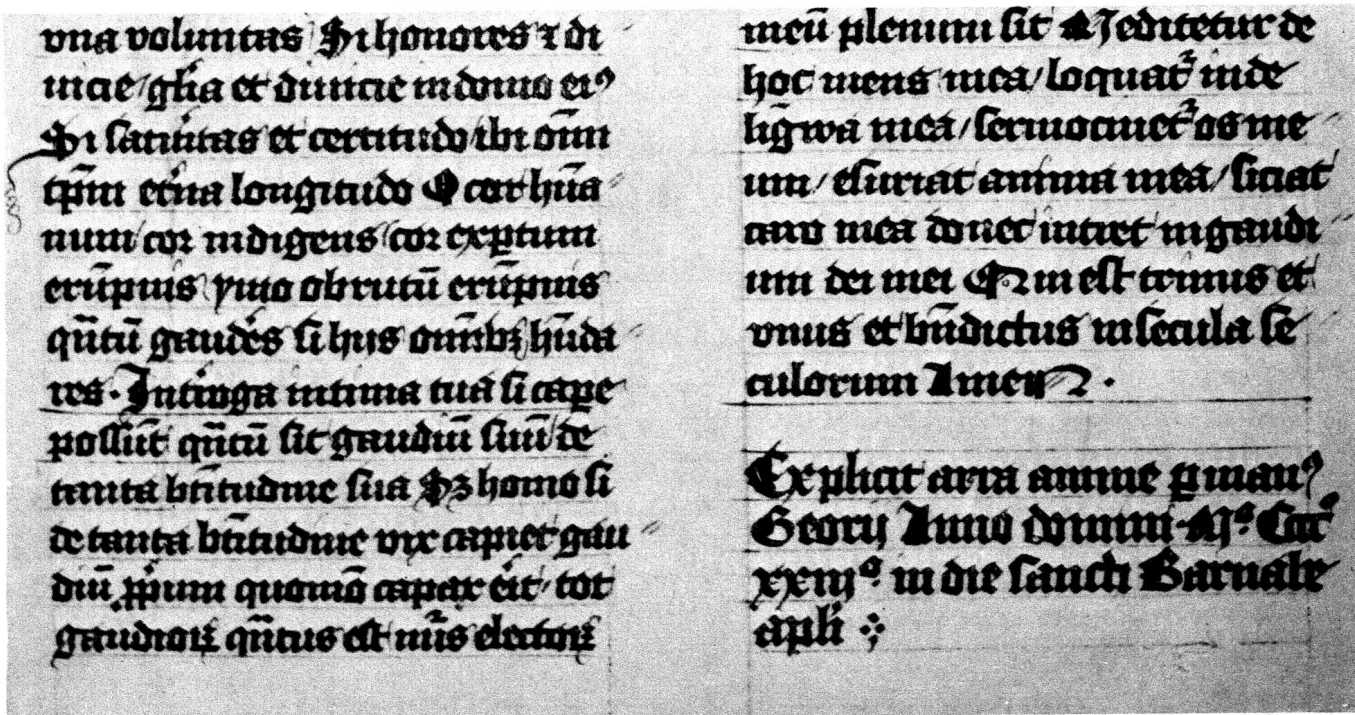 vna voluntas Si honores ⁊ di
uicie / gl̄ia et diuicie in domo ei⁹
Si satuitas et certitudo ibi om̄i
tp̄m et̄na longitudo O cor hūa
num cor indigens cor exp̄tum
erūpnis ymo obrutū erūpnis
qn̄tū gaudēs si hijs om̄ibꝫ hūda
res. Int̄ioga intima tua si cape
possūt qn̄tū sit gaudiū suū de
tanta bt̄itudine sua Sꝫ homo si
de tanta bt̄itudine vix capiet gau
diū pp̄ium quomō capax eīt / tot
gaudioꝝ qn̄tus est mīs electoꝝ
meū plenum sit Meditetur de
hoc mens mea / loquat᷑ inde
ligwa mea / sermocinet᷑ os me
um / esuriat anima mea / siciat
caro mea donec intret in gaudi
um dei mei Qui est trinus et
vnus et bn̄dictus in secula se
culorum Amen .
Explicit arra anime ꝑ man⁹
Georij Anno domini Mº CCCº
xxiijº in die sancti Barnabe
apl̄i